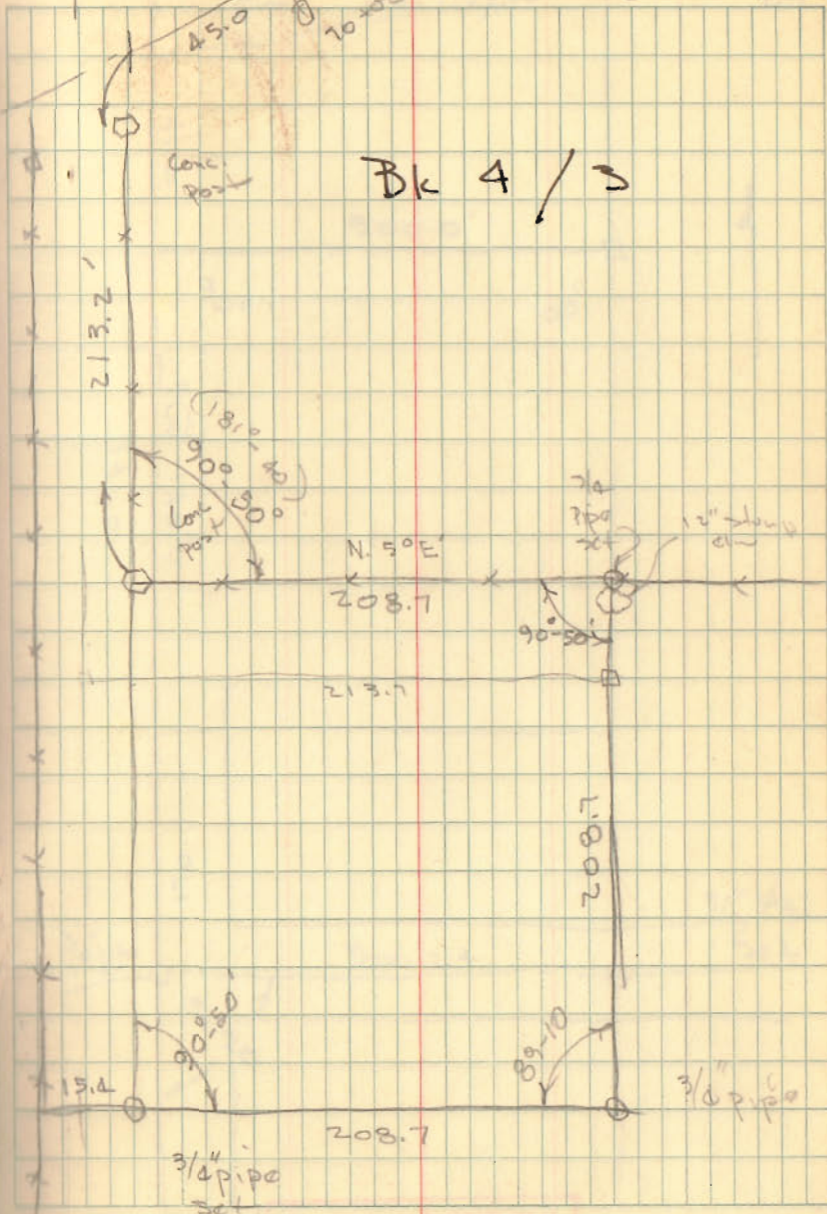 45.0
Conc.
post
Bk 4 / 3
213.2'
(181°-40)
90°-50°
Conc
post
N. 5° E'
208.7
3/4
pipe
set
12"
elm
90°-50'
213.7
208.7
90°-50'
89-10
15.4
208.7
3/4" pipe
3/4" pipe
set